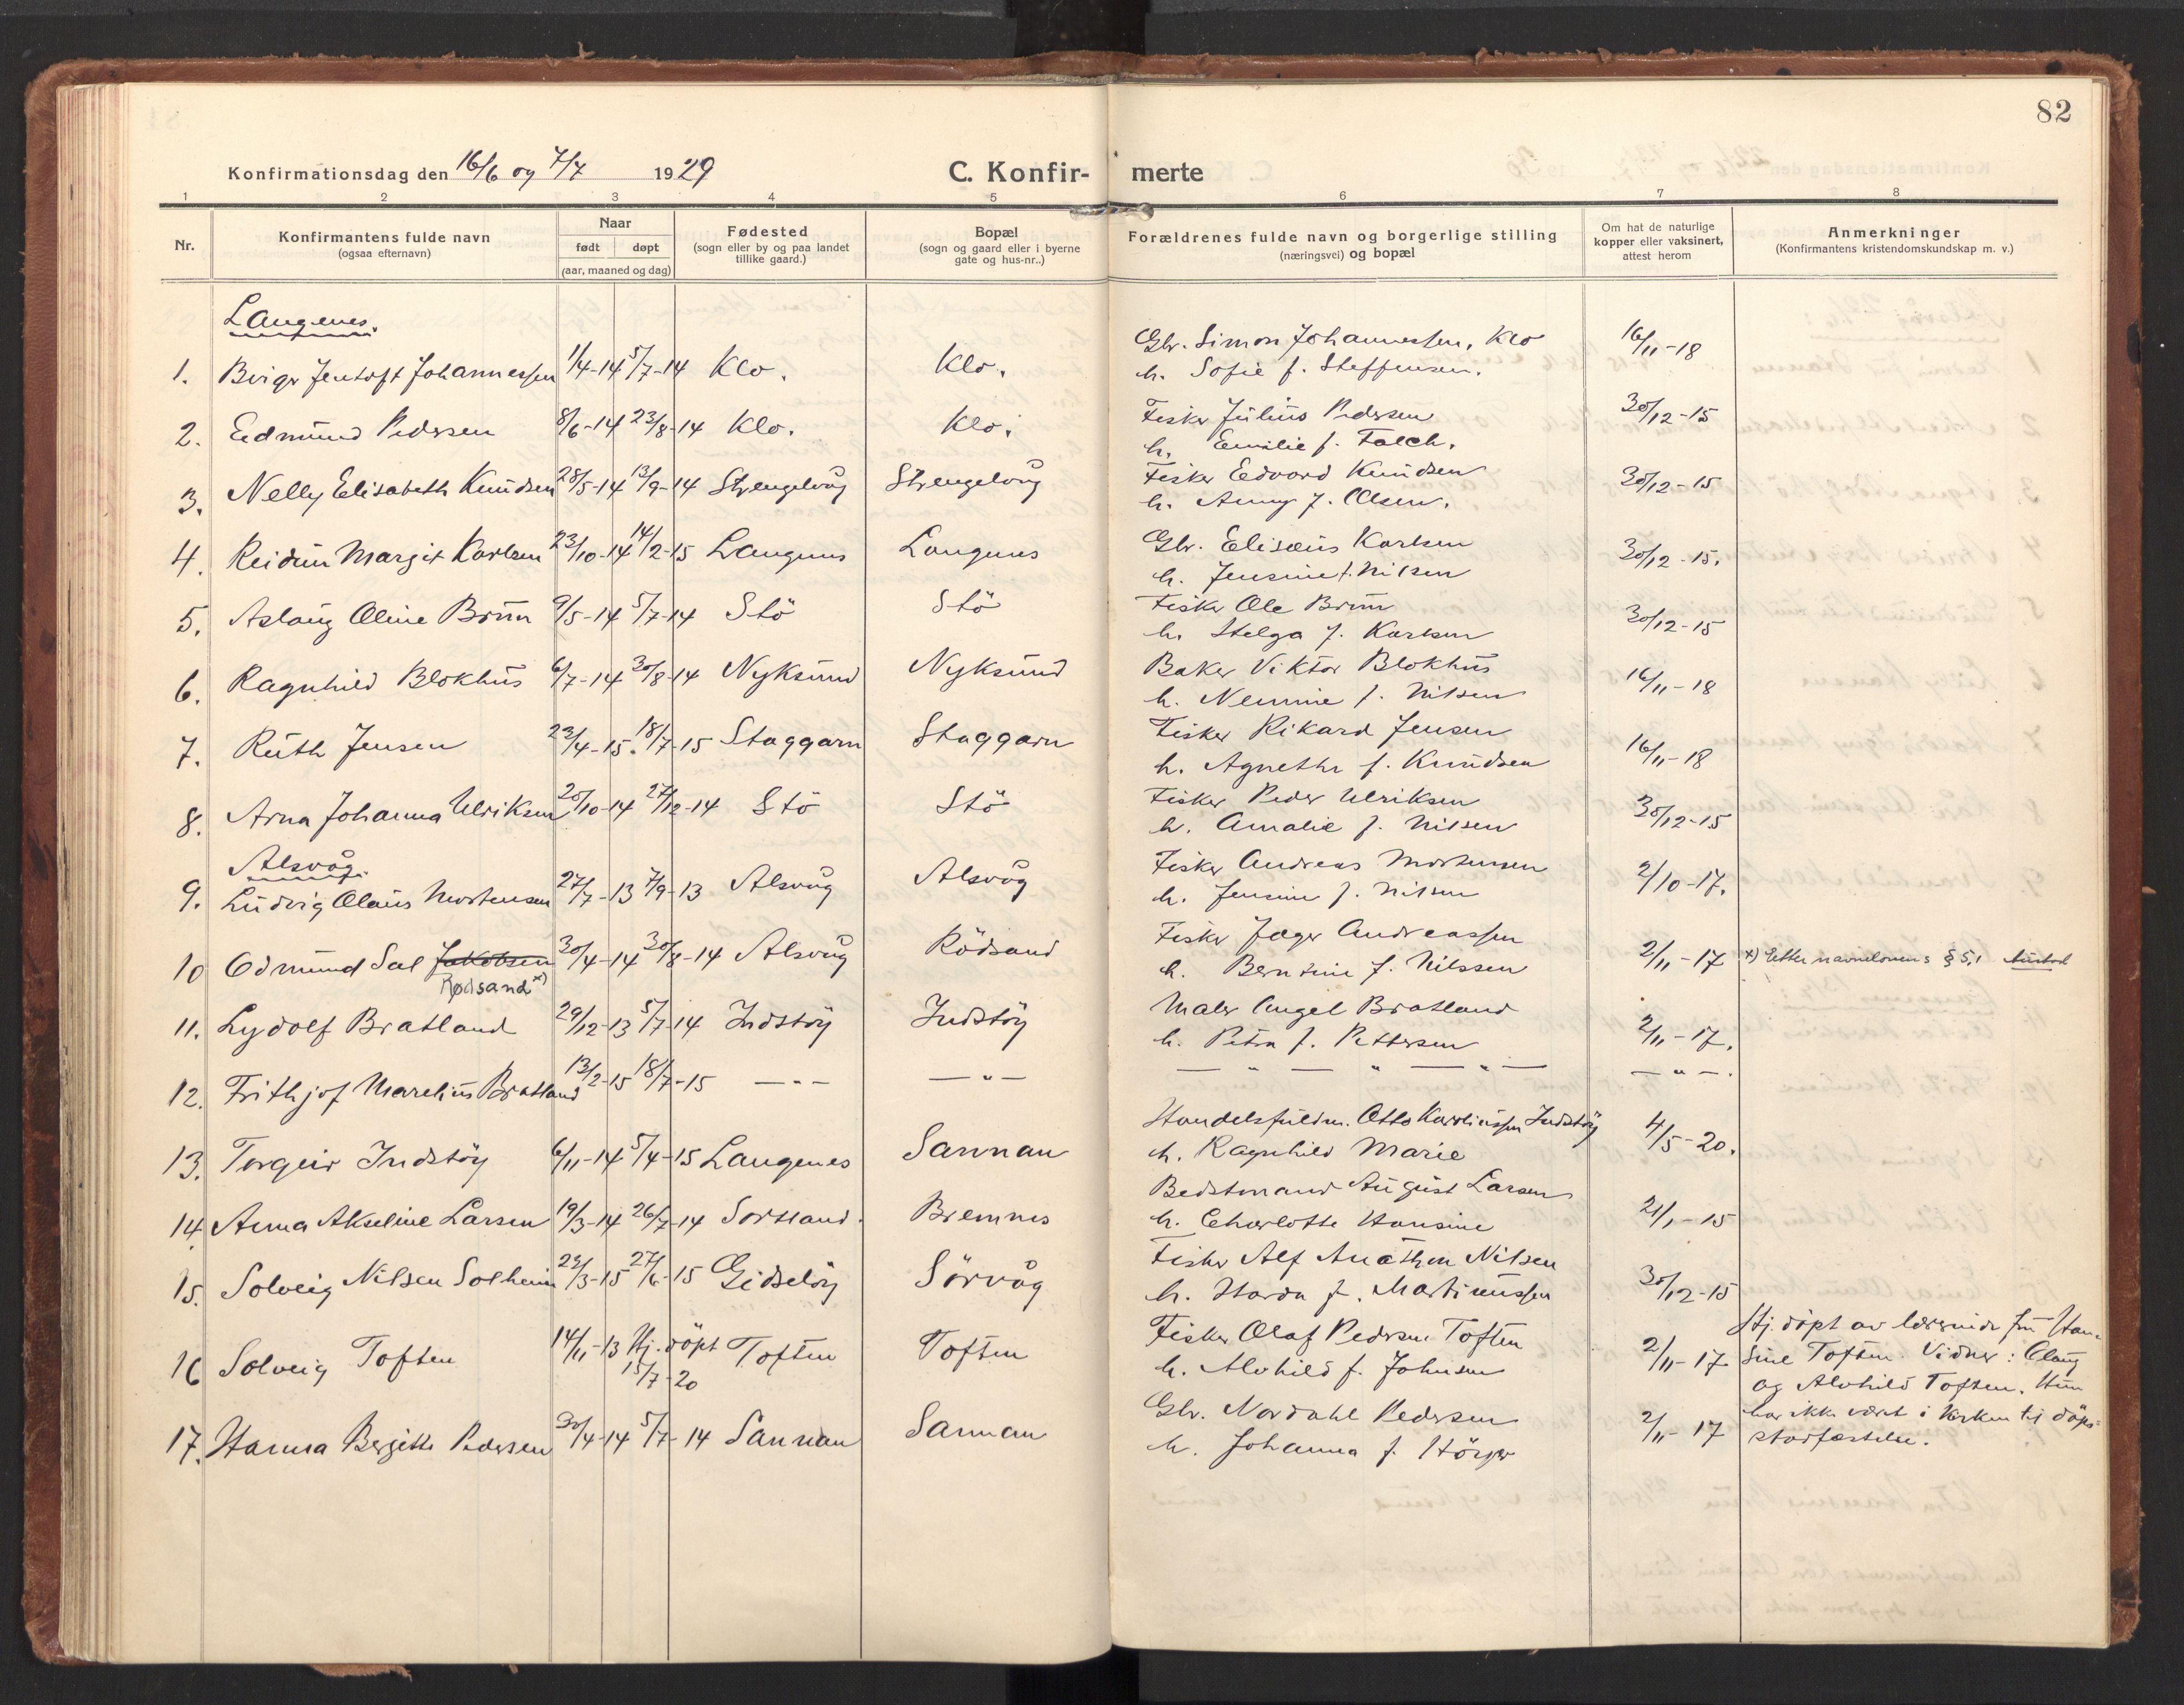 82
Konfirmationsdag den 16/6 og 7/7 1929 C. Konfir- merte
1 2 3 4 5 6 7 8
Nr. Konfirmantens fulde navn (ogsaa efternavn) Naar født døpt (aar, maaned og dag) Fødested (sogn eller by og paa landet tillike gaard.) Bopæl (sogn og gaard eller i byerne gate og hus-nr..) Forældrenes fulde navn og borgerlige stilling (næringsvei) og bopæl Om hat de naturlige kopper eller vaksinert, attest herom Anmerkninger (Konfirmantens kristendomskundskap m. v.)
Langenes.
1. Birger Jentoft Johannessen 1/4-14 5/7-14 Klo. Klo. Gbr. Simon Johannessen, Klo 16/11-18
h. Sofie f. Steffensen.
2. Edmund Pedersen 8/6-14 23/8-14 Klo. Klo. Fisker Julius Pedersen 30/12-15
h. Emilie f. Falch.
3. Nelly Elisabeth Knudsen 28/5-14 13/9-14 Strengelvåg Strengelvåg Fisker Edvard Knudsen 30/12-15
h. Anny f. Olsen.
4. Reidun Margit Karlsen 23/10-14 14/2-15 Langenes Langenes Gbr. Elisæus Karlsen 30/12-15.
h. Jensine f. Nilsen
5. Aslaug Oline Brun 9/5-14 5/7-14 Stö Stö Fisker Ole Brun 30/12-15
h. Helga f. Karlsen
6. Ragnhild Blokhus 6/7-14 30/8-14 Nyksund Nyksund Baker Viktor Blokhus 16/11-18
h. Nemmie f. Nilsen
7. Ruth Jensen 23/4-15. 18/7-15 Staggarn Staggarn Fisker Rikard Jensen 16/11-18
h. Agnethe f. Knudsen
8. Arna Johanna Ulriksen 20/10-14 27/12-14 Stö Stö Fisker Peder Ulriksen 30/12-15
h. Amalie f. Nilsen
Alsvåg.
9. Ludvig Olaus Mortensen 27/7-13 7/9-13 Alsvåg Alsvåg Fisker Andreas Mortensen 2/10-17.
h. Jensine f. Nilsen
10 Odmund Sal Jakobsen 30/4-14 30/8-14 Alsvåg Rödsand Fisker Jæger Andreassen 2/11-17 x) Etter navnelovens § 5,1
Rødsand x) h. Berntine f. Nilssen
11. Lydolf Bratland 29/12-13 5/7-14 Indstöy Indstöy Maler Angel Bratland 2/11-17.
h. Petra f. Pettersen
12. Frithjof Marelius Bratland 13/2-15 18/7-15 — " — — " — — " — " — " — — " —.
13. Torgeir Indstöy 6/11-14 5/4-15 Langenes Sannan Handelsfuldm. Otto Karoliussen Indstöy 4/5-20.
h. Ragnhild Marie
14. Anna Akseline Larsen 19/3-14 26/7-14 Sortland. Bremnes Bedstmand August Larsen 21/1-15
h. Charlotte Hansine
15. Solveig Nilsen Solheim 22/3-15 27/6-15 Gidslöy Sörvåg Fisker Alf Anathon Nilsen 30/12-15
h. Harda f. Martinussen
16 Solveig Toften 14/11-13 Hj. döpt Toften Toften Fisker Olaf Pedersen Toften 2/11-17
15/7-20 h. Alvhild f. Johnsen
Hj. döpt av lærerinde frü Han-
sine Toften. Vidner: Olaug
og Alvhild Toften. Hun
har ikke været i kirken til döps-
stadfæstelse.
17. Hanna Bergitte Pedersen 30/4-14 5/7-14 Sannan Sannan Gbr. Nordahl Pedersen 2/11-17
h. Johanna f. Höyer